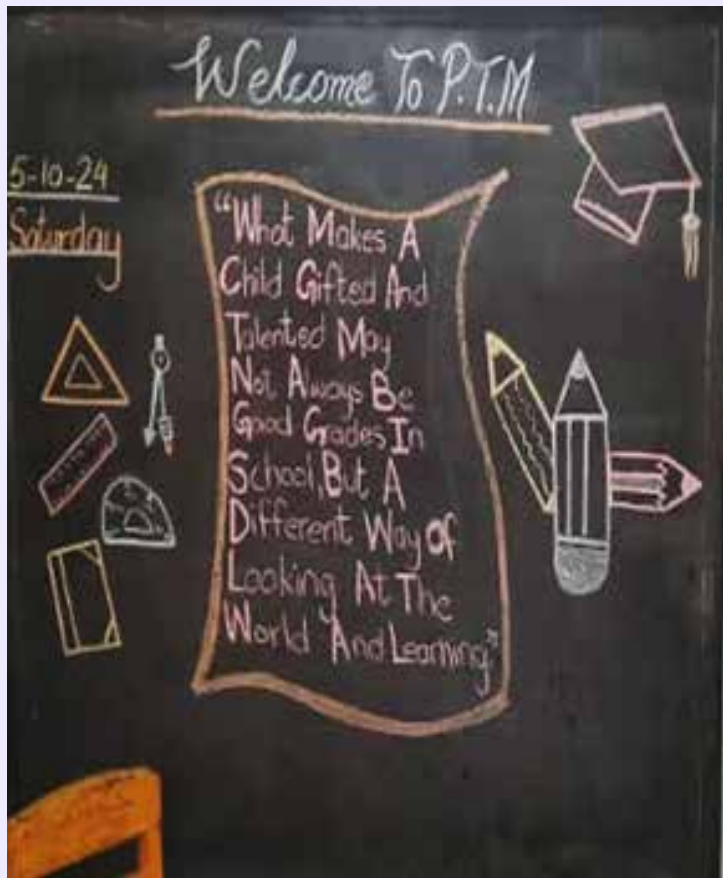 Welcome To P.T.M
5-10-24
Saturday
"What Makes A
Child Gifted And
Talented May
Not Always Be
Good Grades In
School, But A
Different Way Of
Looking At The
World And Learning"